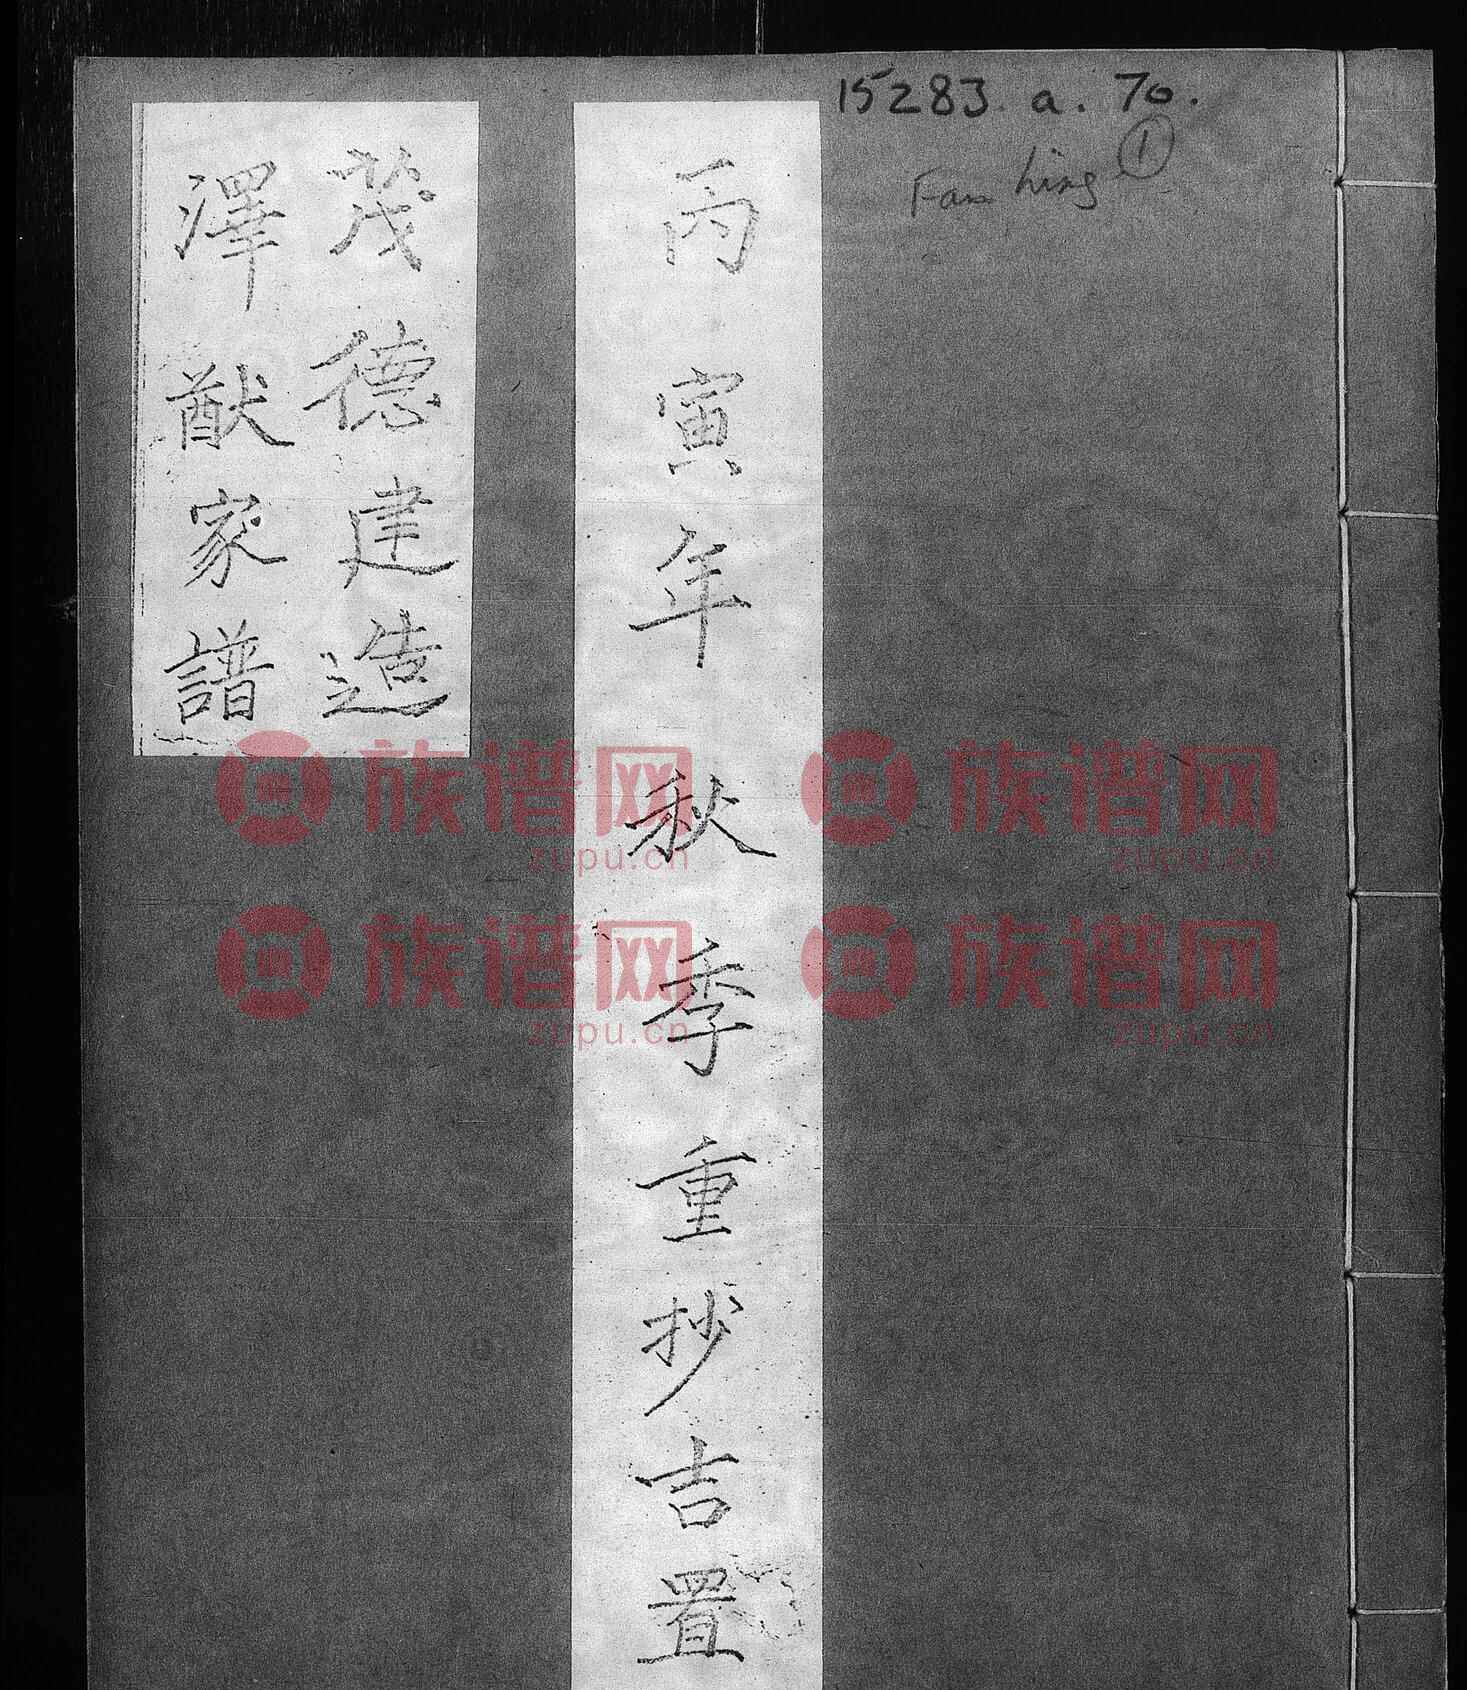 15283. a. 70.
①
Fan Ling
丙寅年秋季重抄吉置
茂德建造
澤猷家譜
族谱网 族谱网
zupu.cn zupu.cn
族谱网 族谱网
zupu.cn zupu.cn